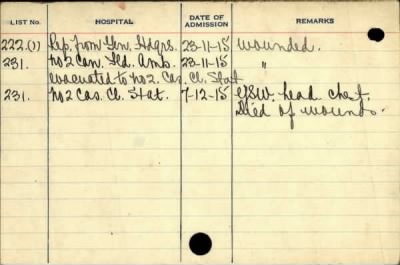 LIST No. HOSPITAL DATE OF ADMISSION REMARKS
222.(1) Rep. from Gen. Hdqrs. 23-11-15 wounded.
231. No 2 Can. Fld. Amb. 23-11-15 "
evacuated to No 2. Cas. Cl. Stat
231. No 2 Cas. Cl. Stat. 7-12-15 GSW. head chest.
Died of wounds.